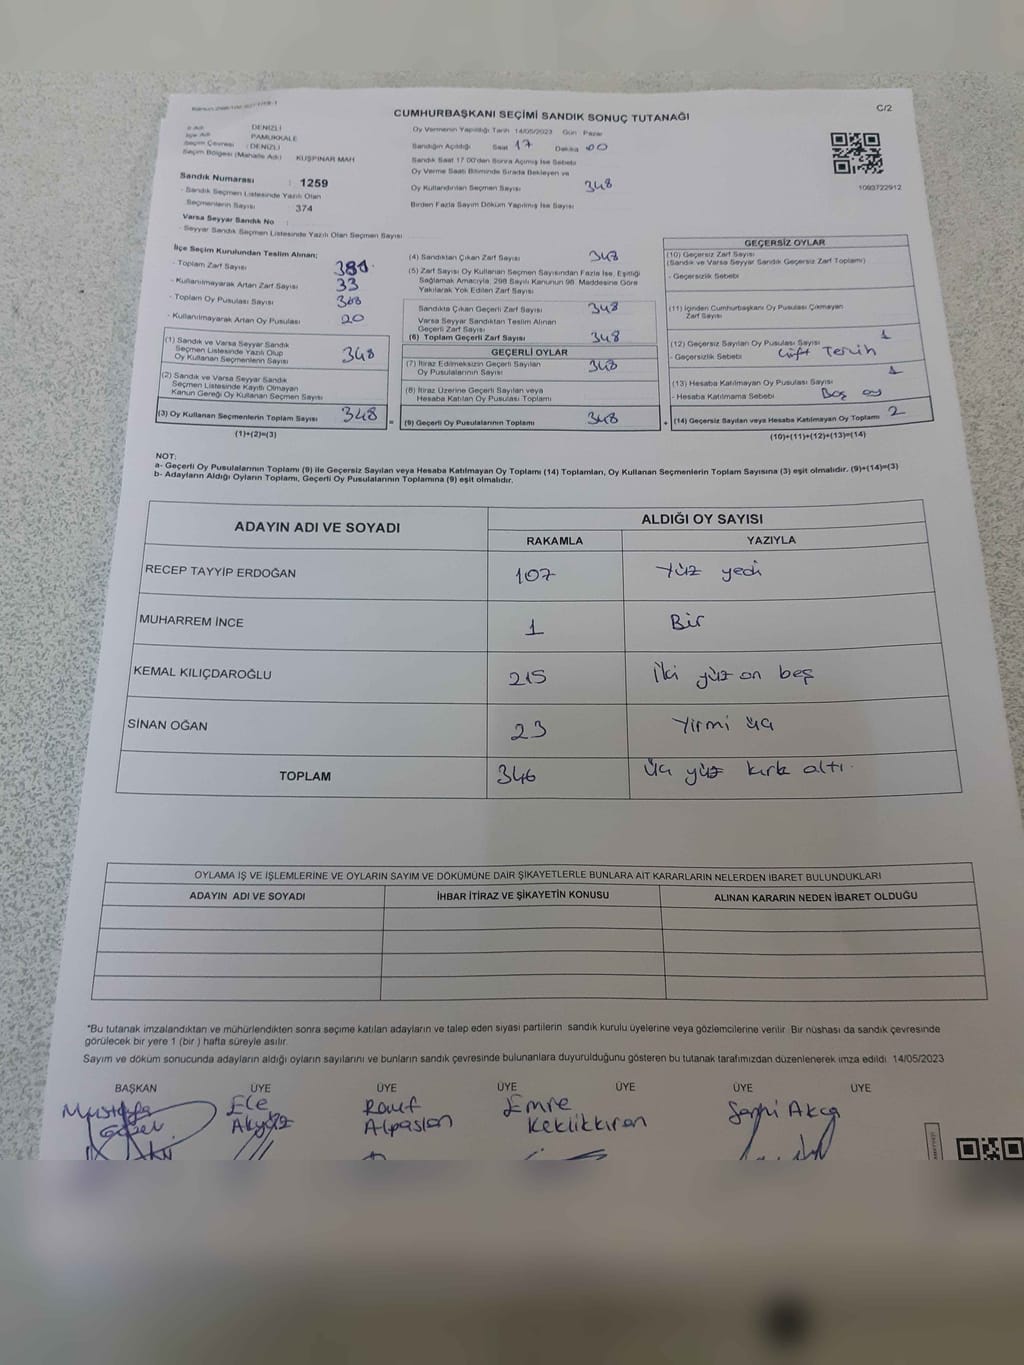 CUMHURBAŞKANI SEÇİMİ SANDIK SONUÇ TUTANAĞI
C/2
İl Adı DENİZLİ
İlçe Adı PAMUKKALE
Seçim Çevresi : DENİZLİ
Seçim Bölgesi (Mahalle Adı) KUŞPINAR MAH
Sandık Numarası : 1259
- Sandık Seçmen Listesinde Yazılı Olan
Seçmenlerin Sayısı 374
Varsa Seyyar Sandık No :
- Seyyar Sandık Listesinde Yazılı Olan Seçmen Sayısı
Oy Vermenin Yapıldığı Tarih 14/05/2023 Gün Pazar
Sandığın Açıldığı Saat 17 Dakika 00
Sandık Saat 17 00'den Sonra Açılmış İse Sebebi
Oy Verme Saati Bitiminde Sırada Bekleyen ve
Oy Kullandırılan Seçmen Sayısı 348
Birden Fazla Sayım Döküm Yapılmış İse Sayısı
1093722912
İlçe Seçim Kurulundan Teslim Alınan;
- Toplam Zarf Sayısı
- Kullanılmayarak Artan Zarf Sayısı 33
- Toplam Oy Pusulası Sayısı
- Kullanılmayarak Artan Oy Pusulası 20
(1) Sandık ve Varsa Seyyar Sandık
Seçmen Listesinde Yazılı Olup
Oy Kullanan Seçmenlerin Sayısı 348
(2) Sandık ve Varsa Seyyar Sandık
Seçmen Listesinde Kayıtlı Olmayan
Kanun Gereği Oy Kullanan Seçmen Sayısı
(3) Oy Kullanan Seçmenlerin Toplam Sayısı 348
(1)+(2)=(3)
(4) Sandıktan Çıkan Zarf Sayısı 348
(5) Zarf Sayısı Oy Kullanan Seçmen Sayısından Fazla İse, Eşitliği
Sağlamak Amacıyla, 298 Sayılı Kanunun 98. Maddesine Göre
Yakılarak Yok Edilen Zarf Sayısı
Sandıkta Çıkan Geçerli Zarf Sayısı 348
Varsa Seyyar Sandıktan Teslim Alınan
Geçerli Zarf Sayısı
(6) Toplam Geçerli Zarf Sayısı 348
GEÇERLİ OYLAR
(7) İtiraz Edilmeksizin Geçerli Sayılan
Oy Pusulalarının Sayısı 348
(8) İtiraz Üzerine Geçerli Sayılan veya
Hesaba Katılan Oy Pusulası Toplamı
= (9) Geçerli Oy Pusulalarının Toplamı 348
GEÇERSİZ OYLAR
(10) Geçersiz Zarf Sayısı
(Sandık ve Varsa Seyyar Sandık Geçersiz Zarf Toplamı)
- Geçersizlik Sebebi
(11) İçinden Cumhurbaşkanı Oy Pusulası Çıkmayan
Zarf Sayısı
(12) Geçersiz Sayılan Oy Pusulası Sayısı 1
- Geçersizlik Sebebi Çift Tercih
(13) Hesaba Katılmayan Oy Pusulası Sayısı 1
- Hesaba Katılmama Sebebi Boş oy
+ (14) Geçersiz Sayılan veya Hesaba Katılmayan Oy Toplamı 2
(10)+(11)+(12)+(13)=(14)
NOT:
a- Geçerli Oy Pusulalarının Toplamı (9) ile Geçersiz Sayılan veya Hesaba Katılmayan Oy Toplamı (14) Toplamları, Oy Kullanan Seçmenlerin Toplam Sayısına (3) eşit olmalıdır. (9)+(14)=(3)
b- Adayların Aldığı Oyların Toplamı, Geçerli Oy Pusulalarının Toplamına (9) eşit olmalıdır.
ADAYIN ADI VE SOYADI ALDIĞI OY SAYISI
RAKAMLA YAZIYLA
RECEP TAYYİP ERDOĞAN 107 Yüz yedi
MUHARREM İNCE 1 Bir
KEMAL KILIÇDAROĞLU 215 İki yüz on beş
SİNAN OĞAN 23 Yirmi üç
TOPLAM 346 üç yüz kırk altı
OYLAMA İŞ VE İŞLEMLERİNE VE OYLARIN SAYIM VE DÖKÜMÜNE DAİR ŞİKAYETLERLE BUNLARA AİT KARARLARIN NELERDEN İBARET BULUNDUKLARI
ADAYIN ADI VE SOYADI İHBAR İTİRAZ VE ŞİKAYETİN KONUSU ALINAN KARARIN NEDEN İBARET OLDUĞU
*Bu tutanak imzalandıktan ve mühürlendikten sonra seçime katılan adayların ve talep eden siyasi partilerin sandık kurulu üyelerine veya gözlemcilerine verilir. Bir nüshası da sandık çevresinde
görülecek bir yere 1 (bir ) hafta süreyle asılır.
Sayım ve döküm sonucunda adayların aldığı oyların sayılarını ve bunların sandık çevresinde bulunanlara duyurulduğunu gösteren bu tutanak tarafımızdan düzenlenerek imza edildi 14/05/2023
BAŞKAN ÜYE ÜYE ÜYE ÜYE ÜYE ÜYE
Mustafa Ece Rauf Emre
Akyüz Alpaslan Keklikkıran Akça